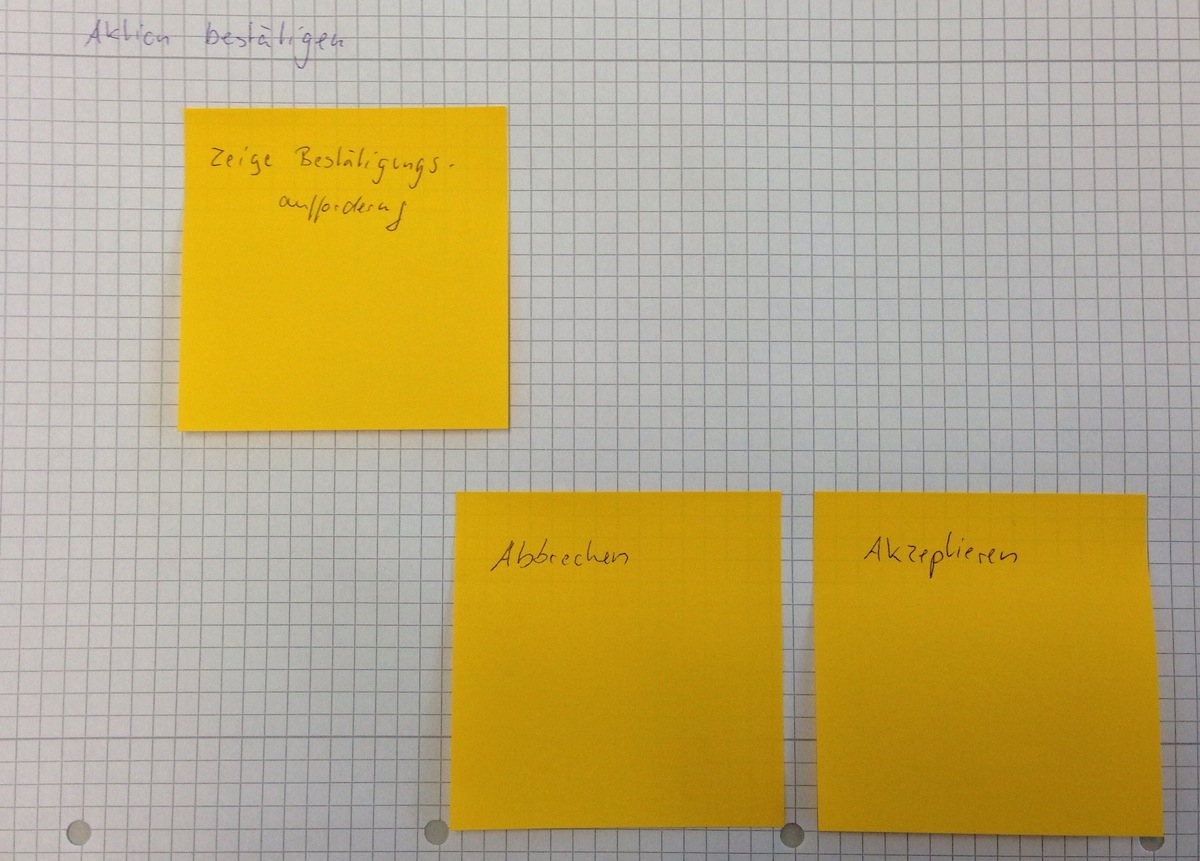 Aktion bestätigen
Zeige Bestätigungs-
aufforderung
Abbrechen
Akzeptieren